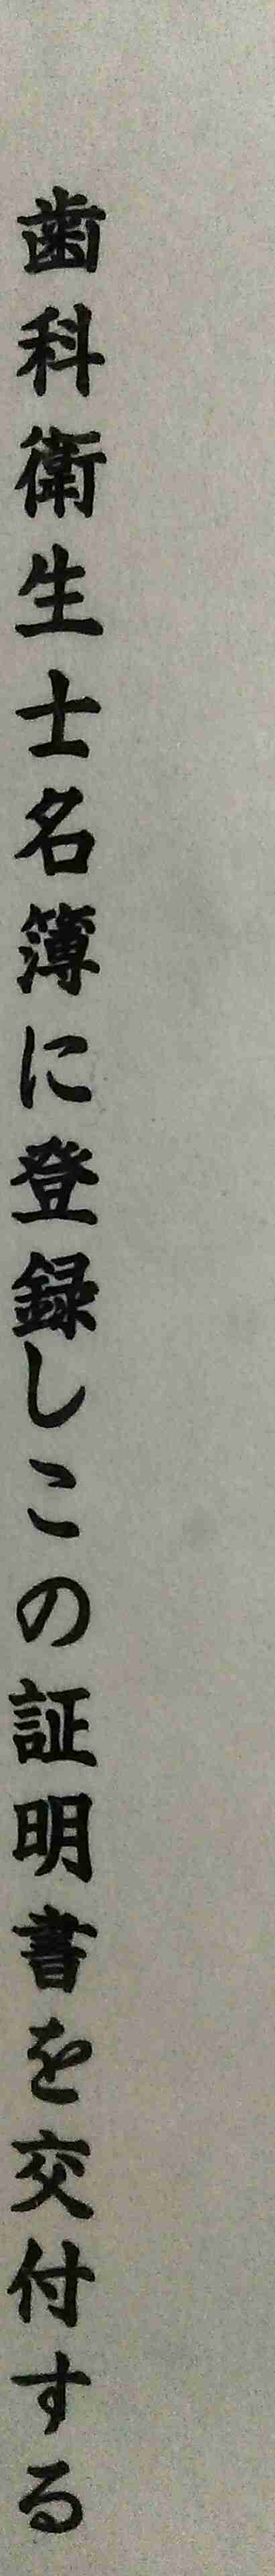 歯科衛生士名簿に登録しこの証明書を交付する